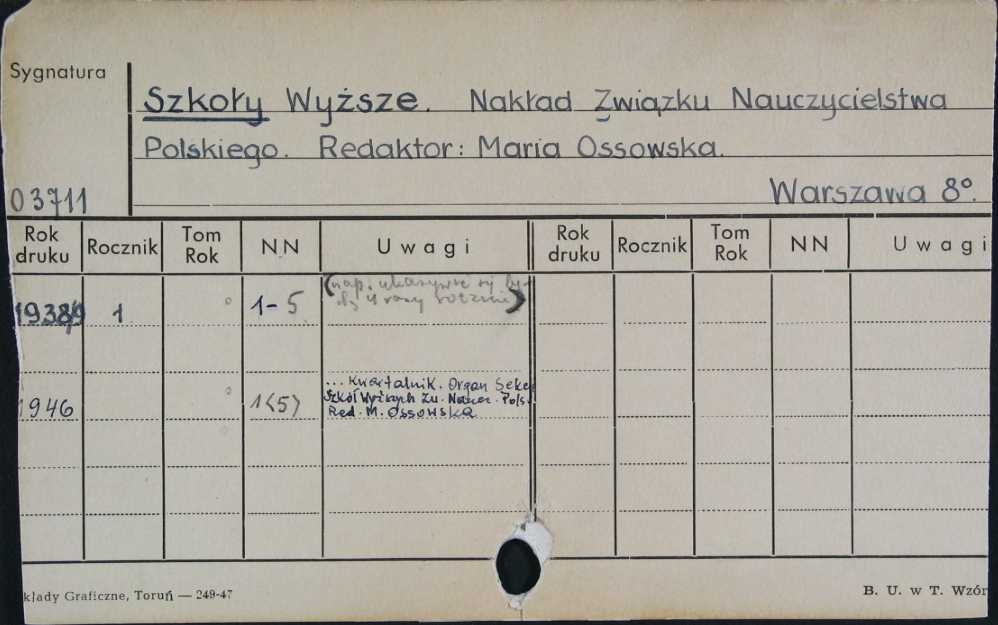 Sygnatura
Szkoły Wyższe. Nakład Związku Nauczycielstwa
Polskiego. Redaktor: Maria Ossowska.
03711
Warszawa 8°.
Rok druku Rocznik Tom Rok NN Uwagi Rok druku Rocznik Tom Rok NN Uwagi
1938/9 1 1-5
rocznie)
... Kwartalnik. Organ Sekc
Szkół Wyższych Zw. Naucz. Pols.
1946 1(5) Red. M. Ossowska
kłady Graficzne, Toruń — 249-47
B. U. w T. Wzór